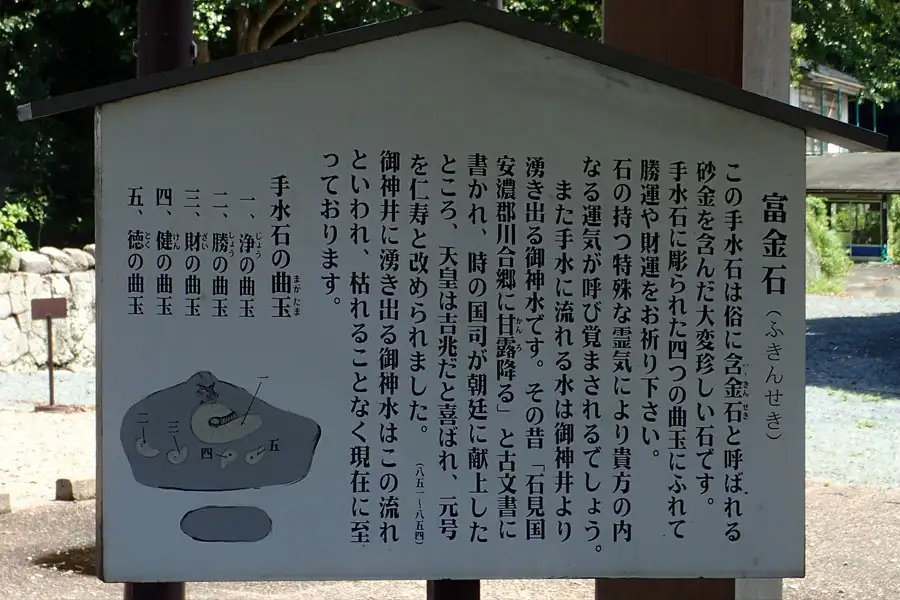 富金石(ふきんせき)
この手水石は俗に含金石と呼ばれる
砂金を含んだ大変珍しい石です。
手水石に彫られた四つの曲玉にふれて
勝運や財運をお祈り下さい。
石の持つ特殊な霊気により貴方の内
なる運気が呼び覚まされるでしょう。
また手水に流れる水は御神井より
湧き出る御神水です。その昔「石見国
安濃郡川合郷に甘露降る」と古文書に
書かれ、時の国司が朝廷に献上した
ところ、天皇は吉兆だと喜ばれ、元号
を仁寿と改められました。(八五一~八五四)
御神井に湧き出る御神水はこの流れ
といわれ、枯れることなく現在に至
っております。
手水石の曲玉
一、浄の曲玉
二、勝の曲玉
三、財の曲玉
四、健の曲玉
五、徳の曲玉
一
二
三
四
五